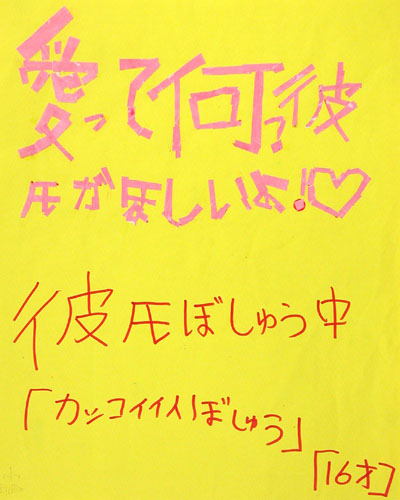 愛って何?彼
氏がほしいよ!♡
彼氏ぼしゅう中
「カッコイイ人ぼしゅう」
「16才」